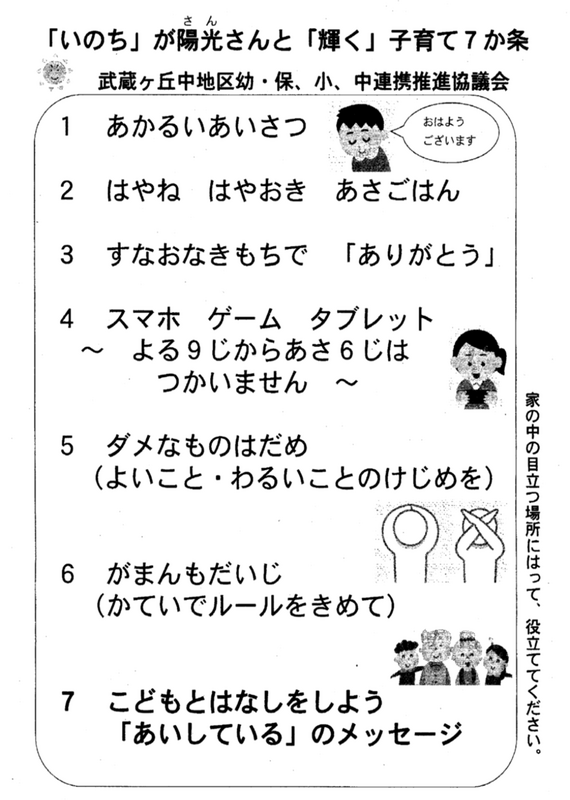 「いのち」が陽光さんと「輝く」子育て７か条
さん
武蔵ヶ丘中地区幼・保、小、中連携推進協議会
１　あかるいあいさつ
おはよう
ございます
２　はやね　はやおき　あさごはん
３　すなおなきもちで　「ありがとう」
４　スマホ　ゲーム　タブレット
～　よる９じからあさ６じは
つかいません　～
５　ダメなものはだめ
（よいこと・わるいことのけじめを）
６　がまんもだいじ
（かていでルールをきめて）
７　こどもとはなしをしよう
「あいしている」のメッセージ
家の中の目立つ場所にはって、役立ててください。